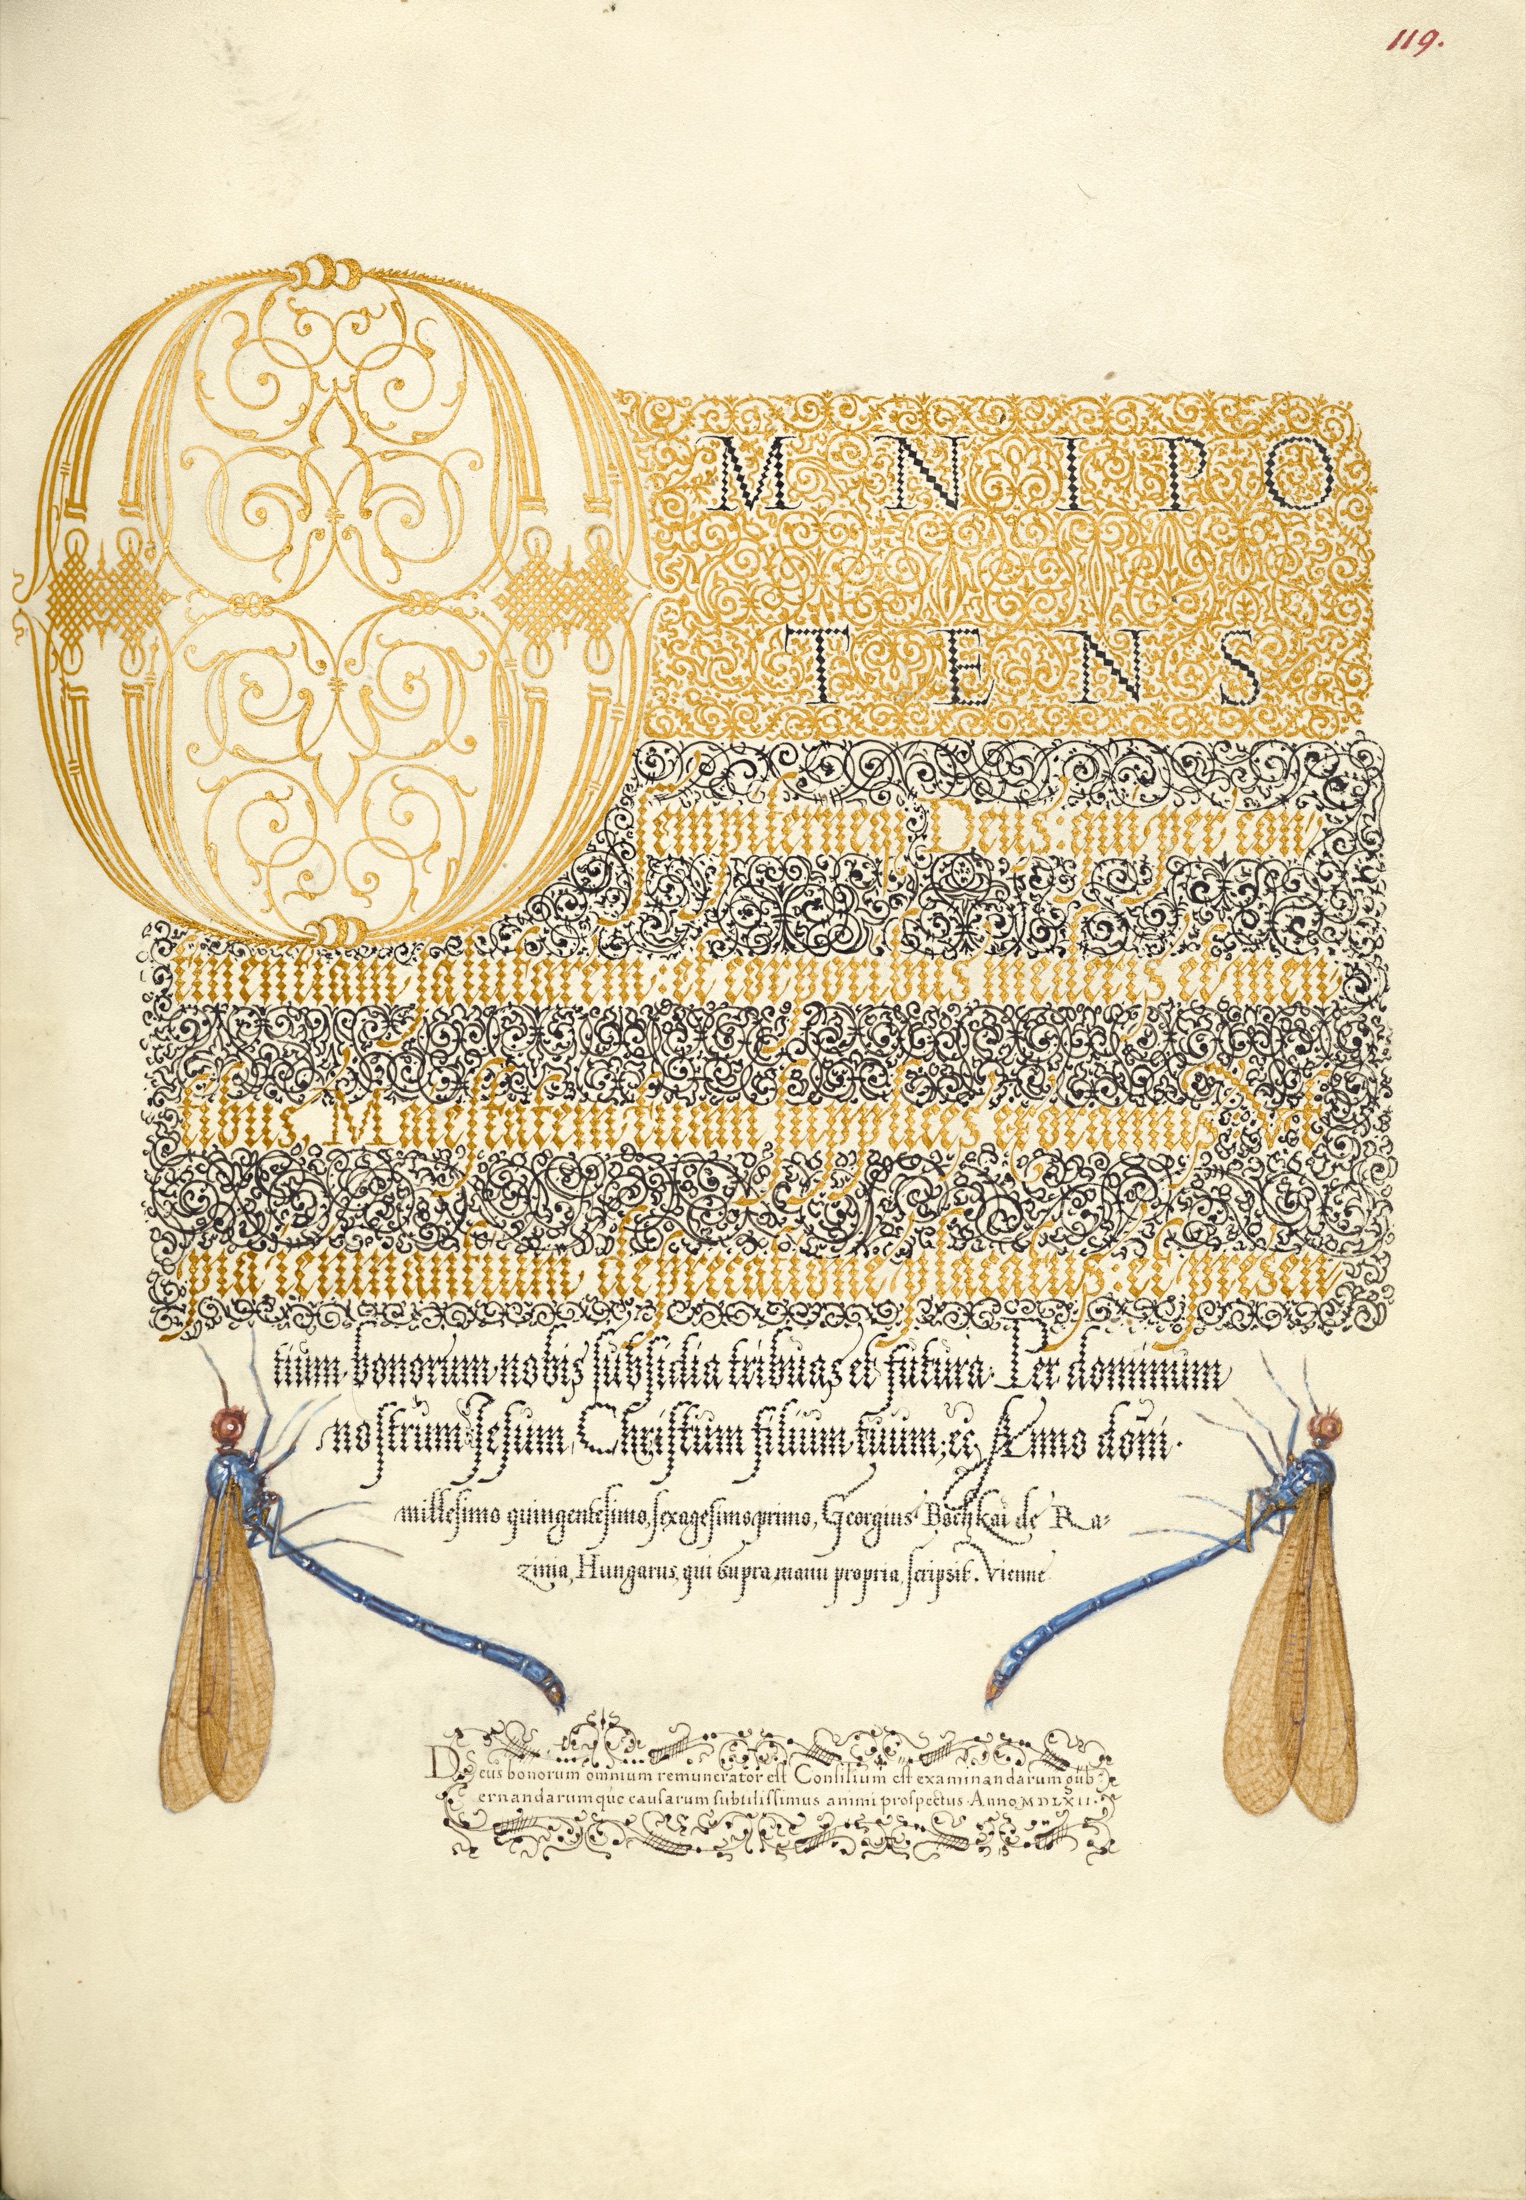 119.
OMNIPO
TENS
sempiterne Deus: qui per con
tinentiam salutarem: et corporibus mederis et men
tibus, Maiestatem tuam supplices exoramus: Vt
pia ieiunantium deprecatione placatus: et presen
tium bonorum nobis subsidia tribuas et futura. Per dominum
nostrum Jesum Christum filium tuum, ec, Anno domi.
millesimo quingentesimo, sexagesimo primo, Georgius Bochkai de Ra-
zinia, Hungarus, qui supra, manu propria, scripsit. Vienne
Deus bonorum omnium remunerator est Consilium est examinandarum gub:
ernandarumque causarum subtilissimus animi prospectus. Anno MDLXII.